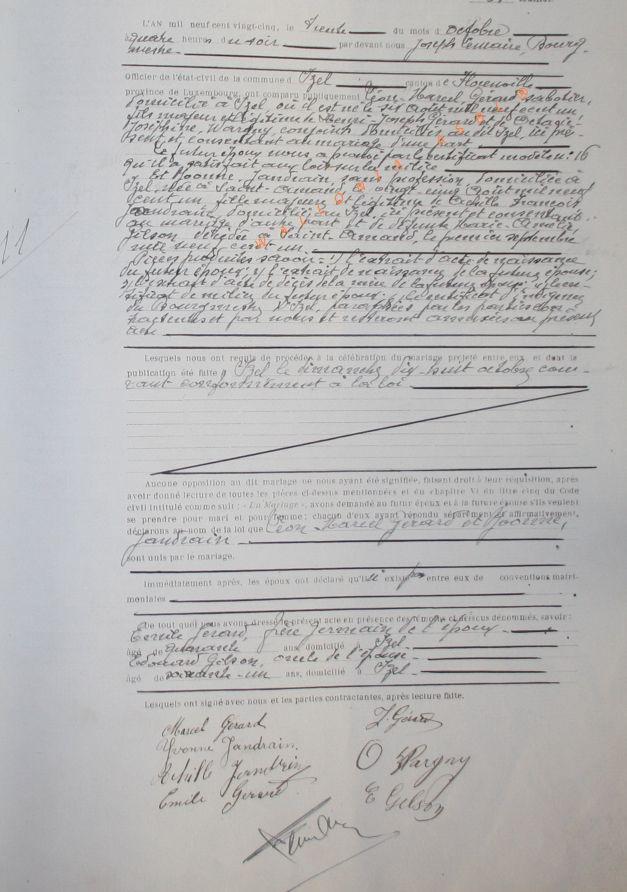 L'AN mil neuf cent vingt-cinq, le trente du mois d'octobre
à quatre heures du soir par devant nous Joseph Lemaire, Bourg-
mestre
Officier de l'état-civil de la commune d'Izel canton de Florenville
province de Luxembourg, ont comparu publiquement Léon-Marcel Gérard, sabotier,
domicilié à Izel, où il est né le mil neuf cent un,
fils majeur et légitime de Henri-Joseph Gérard et de
Joséphine, Wargny, conjoints domiciliés au dit Izel, ici pré-
sents et consentant au mariage d'une part
Le futur époux nous a prouvé par certificat modèle n: 16
qu'il a satisfait aux lois sur la milice
Et Yvonne, Jandrain, sans profession domiciliée à
Izel, née à Saint-Amand, le vingt-cinq août mil neuf
cent un, fille majeure et légitime de Achille François
Jandrain, domicilié au Izel, ici présent et consentant
au mariage d'autre part et de défunte Marie-Amélie
Gilson décédée à Saint-Amand, le premier septembre
mil neuf cent un.
Pièces produites savoir: 1) l'extrait d'acte de naissance
du futur époux; 2) l'extrait de naissance de la future épouse;
3) l'extrait d'acte de décès de la mère de la future épouse; 4) le cer-
tificat de milice du futur époux; 5) le certificat d'indigence
du Bourgmestre d'Izel, paraphées par les parties con-
tractantes et par nous et resteront annexées au présent
acte
Lesquels nous ont requis de procéder à la célébration du mariage projeté entre eux, et dont la
publication été faite à Izel le dimanche dix-huit octobre cou-
rant conformément à la loi
Aucune opposition au dit mariage ne nous ayant été signifiée, faisant droit à leur réquisition, après
avoir donné lecture de toutes les pièces ci-dessus mentionnées et du chapitre VI du titre cinq du Code
civil intitulé comme suit: « Du Mariage », avons demandé au futur époux et à la future épouse s'ils veulent
se prendre pour mari et pour femme: chacun d'eux ayant répondu séparément et affirmativement,
déclarons au nom de la loi que Léon Marcel Gérard et Yvonne,
Jandrain
sont unis par le mariage.
Immédiatement après, les époux ont déclaré qu'il n'existe pas entre eux de conventions matri-
moniales
De tout quoi nous avons dressé le présent acte en présence des témoins ci-dessus dénommés, savoir:
Emile Gérard, frère germain de l'époux
âgé de quarante ans domicilié à Izel
Edouard Gilson, oncle de l'épouse
âgé de soixante-un ans, domicilié à Izel
Lesquels ont signé avec nous et les parties contractantes, après lecture faite.
Marcel Gerard
J. Gérard
Yvonne Jandrain.
O Wargny
Achille Jandrain
Emile Gerard
E Gilson